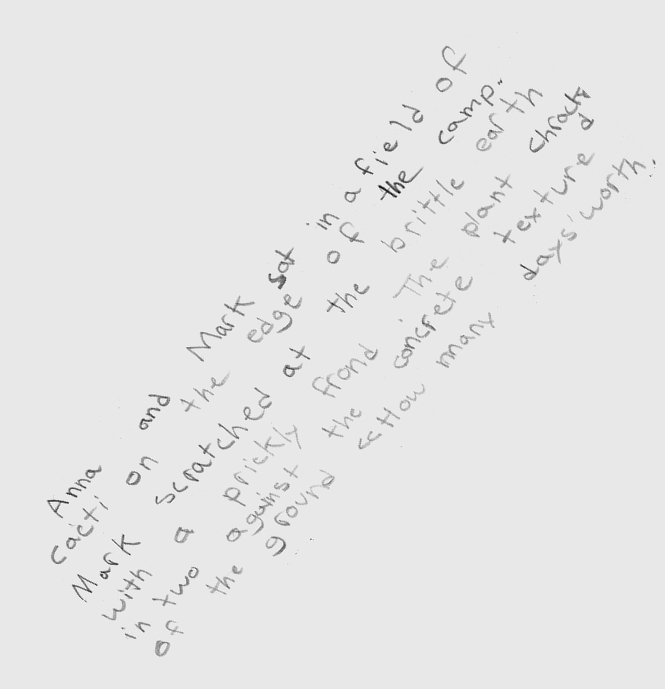 Anna and Mark sat in a field of
cacti on the edge of the camp.
Mark scratched at the brittle earth
with a prickly frond. The plant chrackd
in two against the concrete texture
of the ground "How many days' worth.